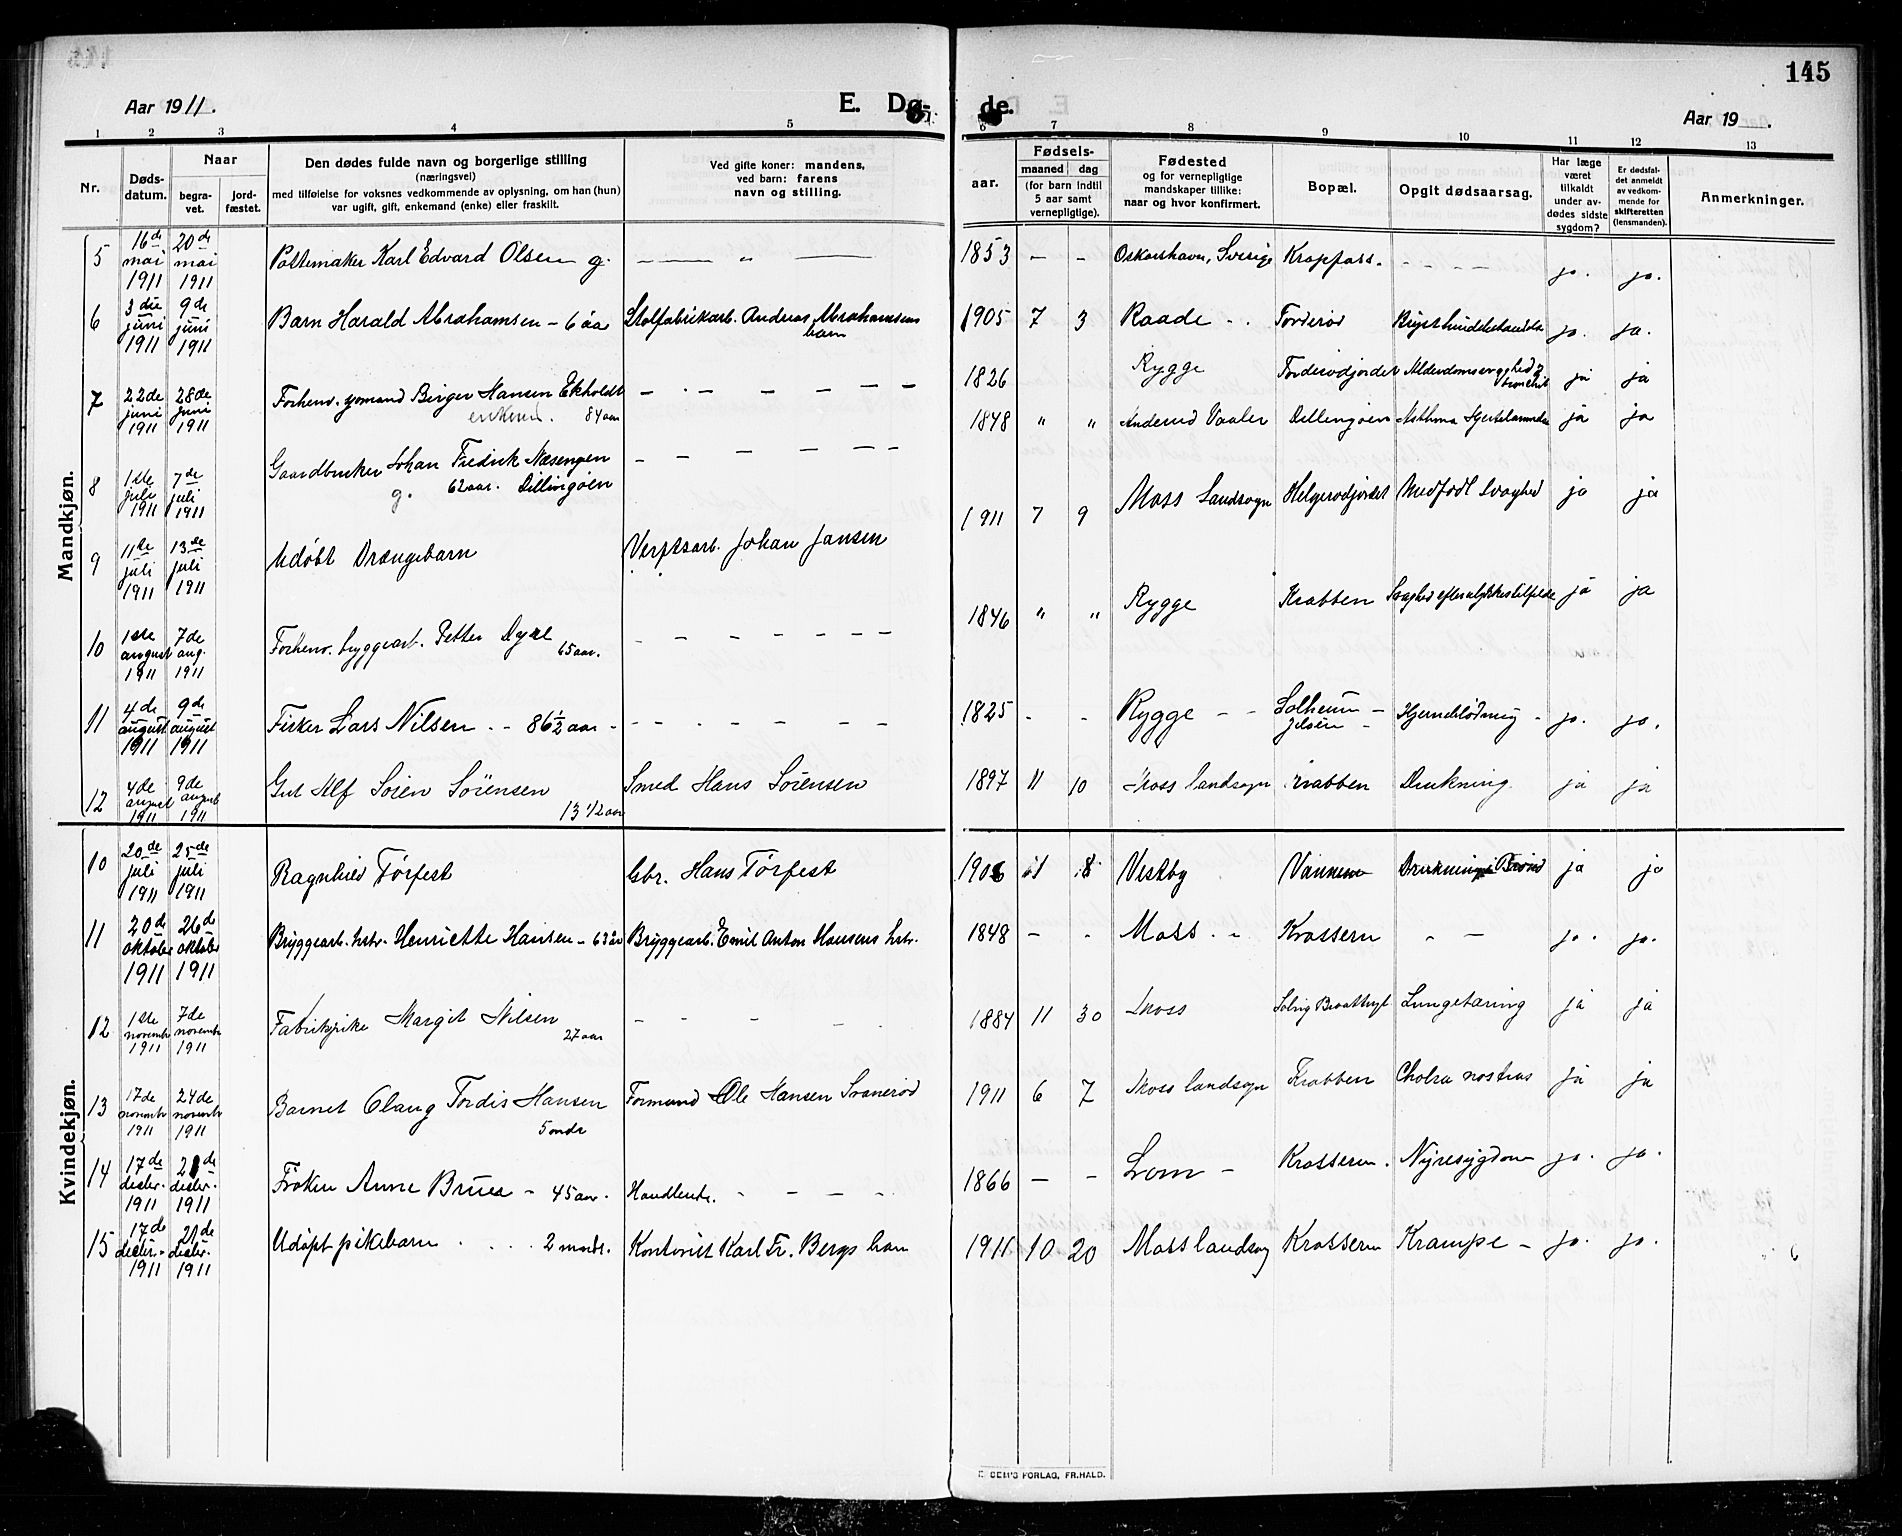 145
Aar 1911.
E. Dø- de.
Aar 19 .
1 2 3 4 5 6 7 8 9 10 11 12 13
Nr.
Døds-
datum.
Naar
begra-
vet.
jord-
fæstet.
Den dødes fulde navn og borgerlige stilling
(næringsvei)
med tilføielse for voksnes vedkommende av oplysning, om han (hun)
var ugift, gift, enkemand (enke) eller fraskilt.
Ved gifte koner: mandens,
ved barn: farens
navn og stilling.
aar.
Fødsels-
maaned dag
(for barn indtil
5 aar samt
vernepligtige).
Fødested
og for vernepligtige
mandskaper tillike:
naar og hvor konfirmert.
Bopæl.
Opgit dødsaarsag.
Har læge
været
tilkaldt
under av-
dødes sidste
sygdom?
Er dødsfal-
det anmeldt
av vedkom-
mende for
skifteretten
(lensmanden).
Anmerkninger.
Mandkjøn.
5 16de mai 1911 20de mai 1911 Pottemaker Karl Edvard Olsen g. — „ — 1853 — - Oskarshavn, Sverige Kroppass. - - - - ja. ja.
6 3die juni 1911 9de juni 1911 Barn Harald Abrahamsen - 6 aar Stolfabrikarb. Andreas Abrahamsens barn 1905 7 3 Raade - . Torderød ja. ja.
7 22de juni 1911 28de juni 1911 Forhenv. gaardmand Birger Hansen Ekholdt enkem. 84 aar — - — — — — 1826 Rygge Torderødjordet ja ja
8 1ste juli 1911 7de juli 1911 Gaardbruker Johan Fredrik Næsengen g. 62 aar. Dillingøen - — — — — — 1848 „ „ Vaaler Dillingøen Asthma ja ja
9 11te juli 1911 13de juli 1911 Udøbt Drængebarn Verftsarb. Johan Jansen 1911 7 9 Moss Landsogn Helgerødjordet Medfødt Svaghed ja ja
10 1ste august 1911 7de aug. 1911 Forhenv. byggearb. Petter Dyre 65 aar. - — — — — — 1846 „ „ Rygge Krabben Svaghed efter ulykkestilfelde ja ja
11 4de august 1911 9de august 1911 Fisker Lars Nilsen . - 86 ½ aar - - - . - - - - 1825 - - Rygge - - Solheim - Jeløen - Hjerneblødning - ja. ja.
12 4de august 1911 9de august 1911 Gut Alf Søren Sørensen 13 1/2 aar Smed Hans Sørensen 1897 11 10 Moss landsogn Krabben Drukning ja ja
Kvindekjøn.
10 20de juli 1911 25de juli 1911 Ragnhild Tørfest Gbr. Hans Tørfest 1906 11 8 Vestby Vannem Drukning i Brønd ja ja
11 20de oktober 1911 26de oktober 1911 Bryggearb. hstr. Henriette Hansen - 63 år Bryggearb. Emil Anton Hansens hstr. 1848 — - Moss . - Krossern - — ja. ja.
12 1ste novembr 1911 7de novembr 1911 Fabrikpike Margit Nilsen 27 aar - - - - 1884 11 30 Moss Lungetæring ja ja
13 17de novembr 1911 24de novembr 1911 Barnet Olaug Tordis Hansen 5 mdr Formand Ole Hansen Svanerød 1911 6 7 Moss landsogn Krabben Cholra nostras ja ja
14 17de decbr. 1911 21de decbr. 1911 Frøken Anne Bruea - 45 aar. Handlende. - - - - 1866 — — Lom - Krosseren. Nyresygdom ja. ja.
15 17de decbr. 1911 21de decbr. 1911 Udøpt pikebarn . . . . 2 mndr. Kontorist Karl Fr. Bergs barn 1911 10 20 Moss landsog Krosseren Krampe - ja. ja.
E. SEM'S FORLAG, FR.HALD.